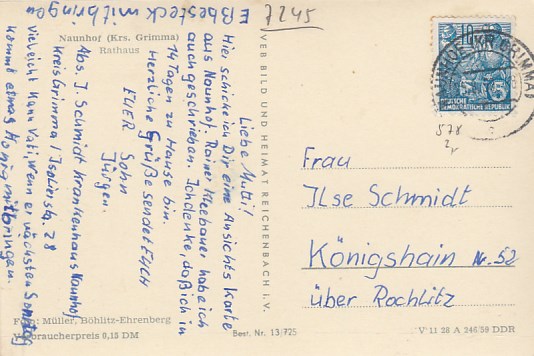 Eßbesteck mitbringen
7245
Naunhof (Krs. Grimma)
Rathaus
Liebe Mutti!
Hier schicke ich Dir eine Ansichtskarte
aus Naunhof. Rainer Kleebauer habe ich
auch geschrieben. Ich denke, daß ich in
14 Tagen zu Hause bin.
Herzliche Grüße sendet Euch
EUER Sohn
Jürgen.
Abs. J. Schmidt Krankenhaus Naunhof
Kreis Grimma / Isolierst. 28
Vieleicht kann Vati, wenn er nächsten Sonntag
kommt etwas Honig mitbringen.
Foto: Müller, Böhlitz-Ehrenberg
Verbraucherpreis 0,15 DM
VEB BILD UND HEIMAT REICHENBACH I. V.
Best. Nr. 13/725
10
5
DEUTSCHE
DEMOKRATISCHE REPUBLIK
578
Frau
Ilse Schmidt
Königshain Nr. 52
über Rochlitz
V 11 28 A 246/59 DDR